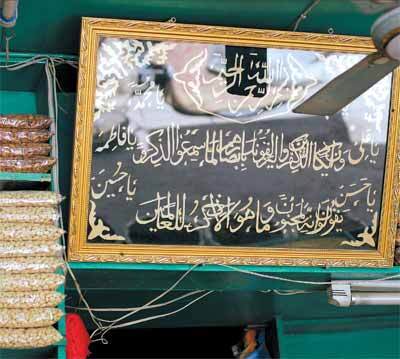 بسم الله الرحمن الرحيم
يا محمد
يا علي
وإن يكاد الذين كفروا ليزلقونك بأبصارهم لما سمعوا الذكر
يا فاطمة
يا حسن
ويقولون إنه لمجنون وما هو إلا ذكر للعالمين
يا حسين